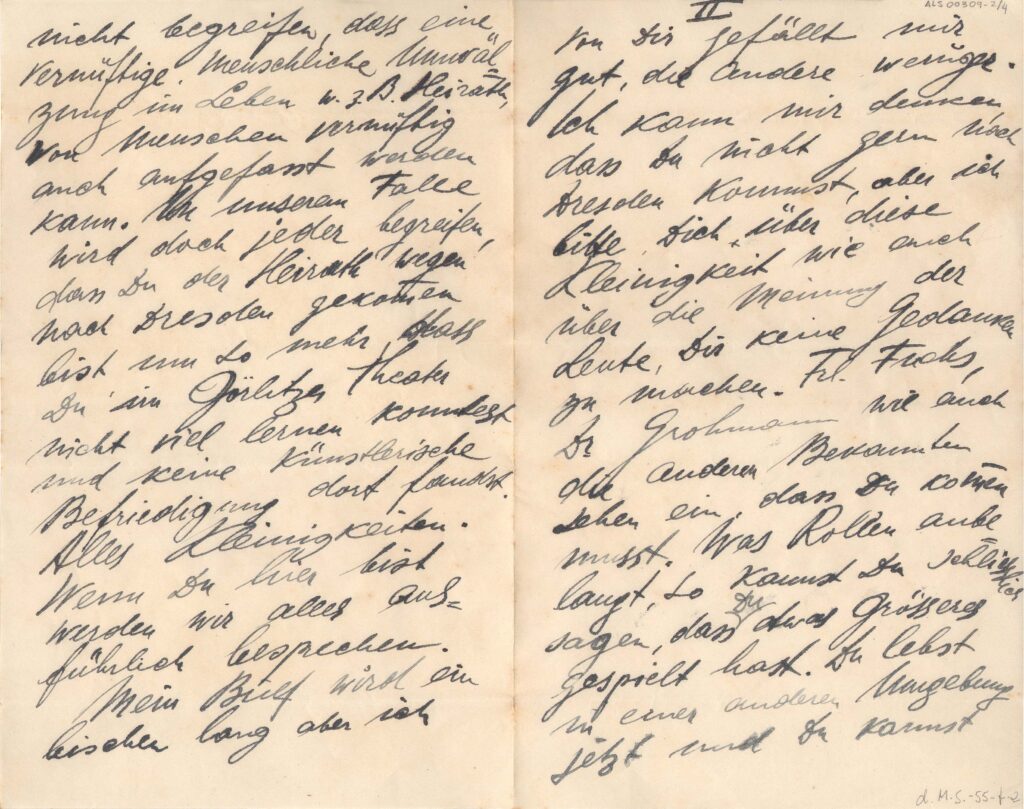 nicht begreifen, dass eine
vernüftige. menschliche Umwäl
zung im Leben w. z. B. Heirath,
von Menschen vernüftig
auch aufgefasst werden
kann. In unserem Falle
wird doch jeder begreifen,
dass Du der Heirath wegen
nach Dresden gekom̅en
bist um so mehr, dass
Du im Görlitzer Theater
nicht viel lernen konntest
und keine künstlerische
Befriedigung dort fandst.
Alles Kleinigkeiten.
Wenn Du hier bist
werden wir alles aus=
führlich besprechen.
Mein Brief wird ein
bischen lang aber ich
II
ALS 00309-2/4
von Dir gefällt mir
gut, die andere weniger.
Ich kann mir denken,
dass Du nicht gern nach
Dresden kommst, aber ich
bitte Dich, über diese
Kleinigkeit wie auch
über die Meinung der
Leute, Dir keine Gedanken
zu machen. Frl. Fuchs,
Dr Grohmann wie auch
die anderen Bekannten
sehen ein, dass Du kom̅en
musst. Was Rollen anbe
langt, so kannst Du schliesslich
sagen, dass Du etwas Grösseres
gespielt hast. Du lebst
in einer anderen Umgebung
jetzt und Du kannst